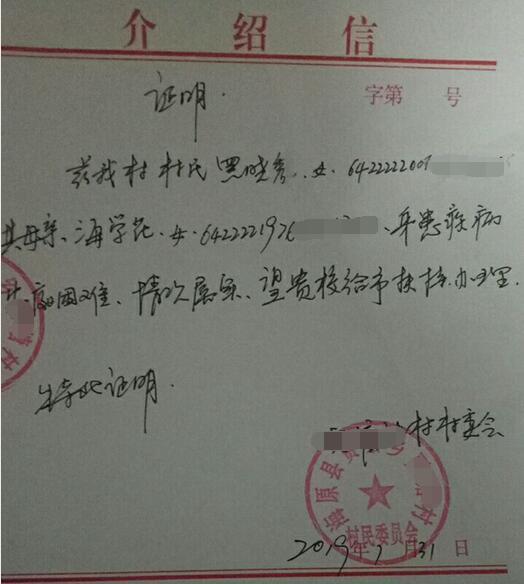 介绍信
证明.
字第 号
兹我村村民罗晓秀、女、6422222001
其母亲、海学花、女、642222197 、身患疾病
困难、情况属实、望贵校给予扶持办理.
特此证明.
村村委会
海原县 村
村民委员会
2019年 月31日